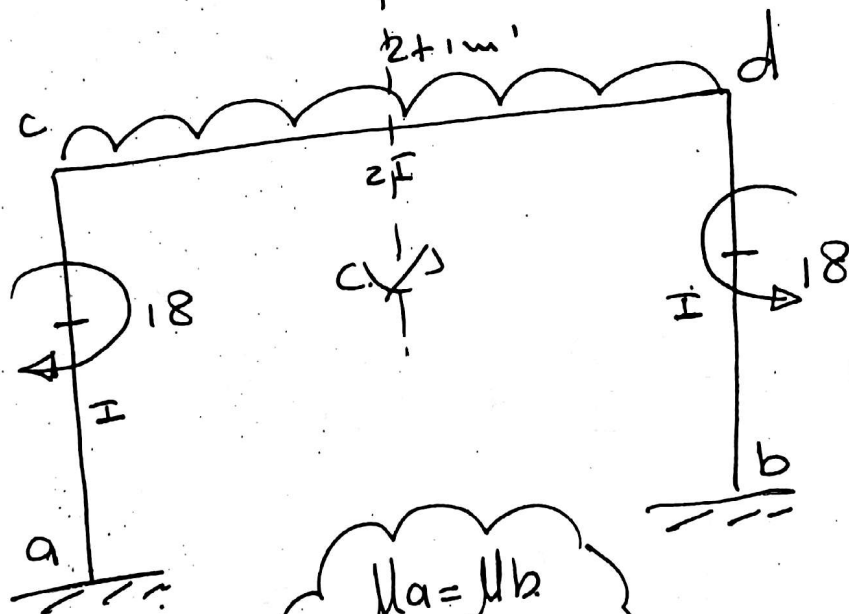 2t/m'
c
d
2I
C.
18
18
I
I
b
a
Ma = Mb